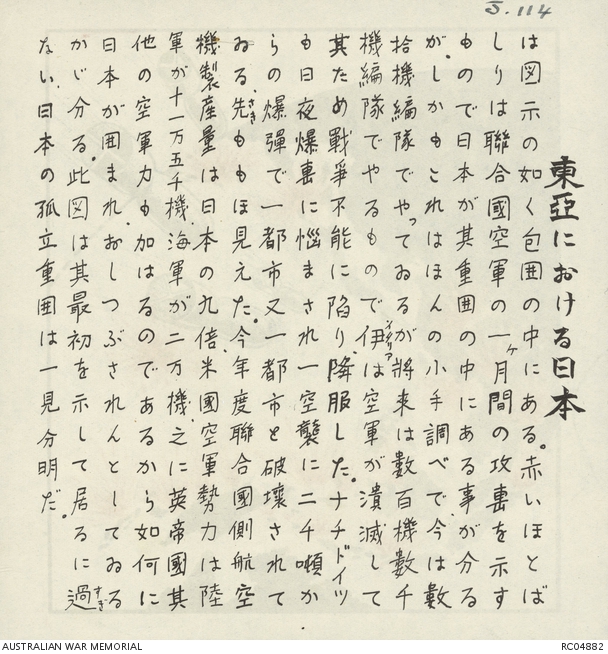 J.114
東亞における日本
は図示の如く包囲の中にある。赤いほとば
しりは聯合國空軍の一ヶ月間の攻撃を示す
もので日本が其重囲の中にある事が分る
が、しかもこれはほんの小手調べで、今は數
拾機編隊でやってゐるが將來は數百機數千
機編隊でやるもので伊は空軍が潰滅して
其ため戰爭不能に陥り、降服した。ナチドイツ
も日夜爆撃に惱まされ一空襲に二千噸か
らの爆彈で一都市又一都市と破壊されて
ゐる。先ももほ見えた。今年度聯合國側航空
機製産量は日本の九倍、米國空軍勢力は陸
軍が十一万五千機、海軍が二万機、之に英帝國其
他の空軍力も加はるのであるから如何に
日本が囲まれ、おしつぶされんとしてゐる
かゞ分る。此図は其最初を示して居るに過
ない、日本の孤立重囲は一見分明だ。
イタリア
さき
すぎ
AUSTRALIAN WAR MEMORIAL
RC04882